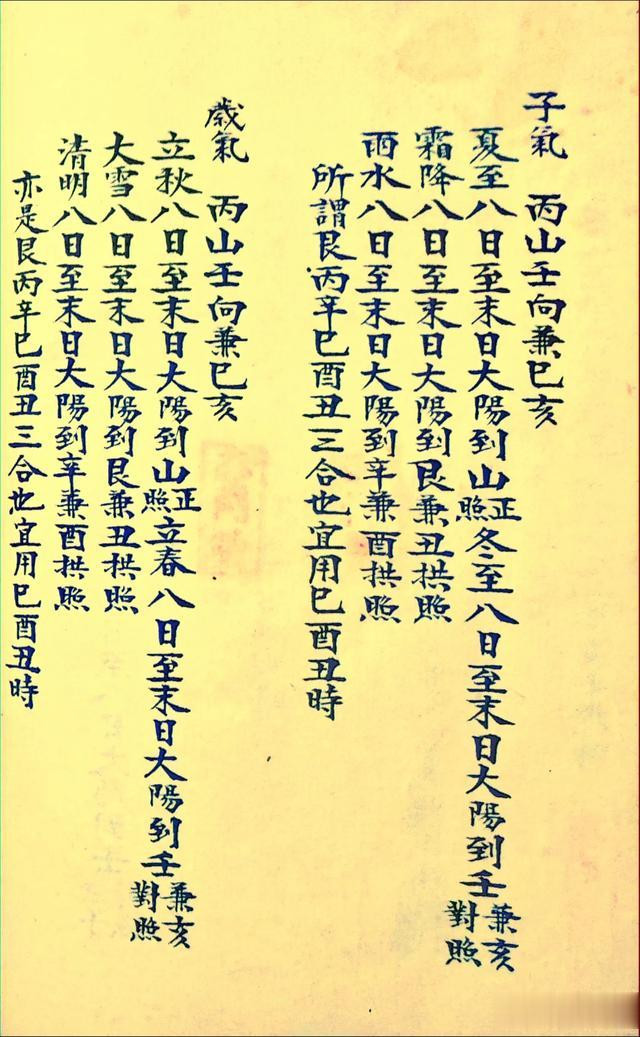 子氣　丙山壬向兼巳亥
夏至八日至末日大陽到山正照冬至八日至末日大陽到壬兼亥對照
霜降八日至末日大陽到艮兼丑拱照
雨水八日至末日大陽到辛兼酉拱照
所謂艮丙辛巳酉丑三合也宜用巳酉丑時
歲氣　丙山壬向兼巳亥
立秋八日至末日大陽到山正照立春八日至末日大陽到壬兼亥對照
大雪八日至末日大陽到艮兼丑拱照
清明八日至末日大陽到辛兼酉拱照
亦是艮丙辛巳酉丑三合也宜用巳酉丑時